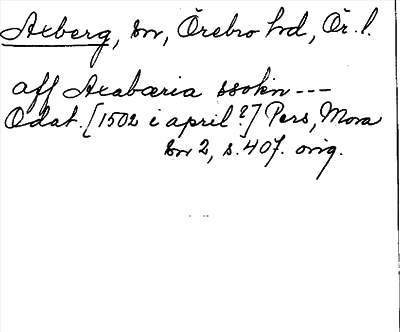 Axberg, sn, Örebro hd, Ör. l.
aff Axabæria ssokn ---
Odat. [1502 i april?] Pers, Mora
sn 2, s. 407. orig.